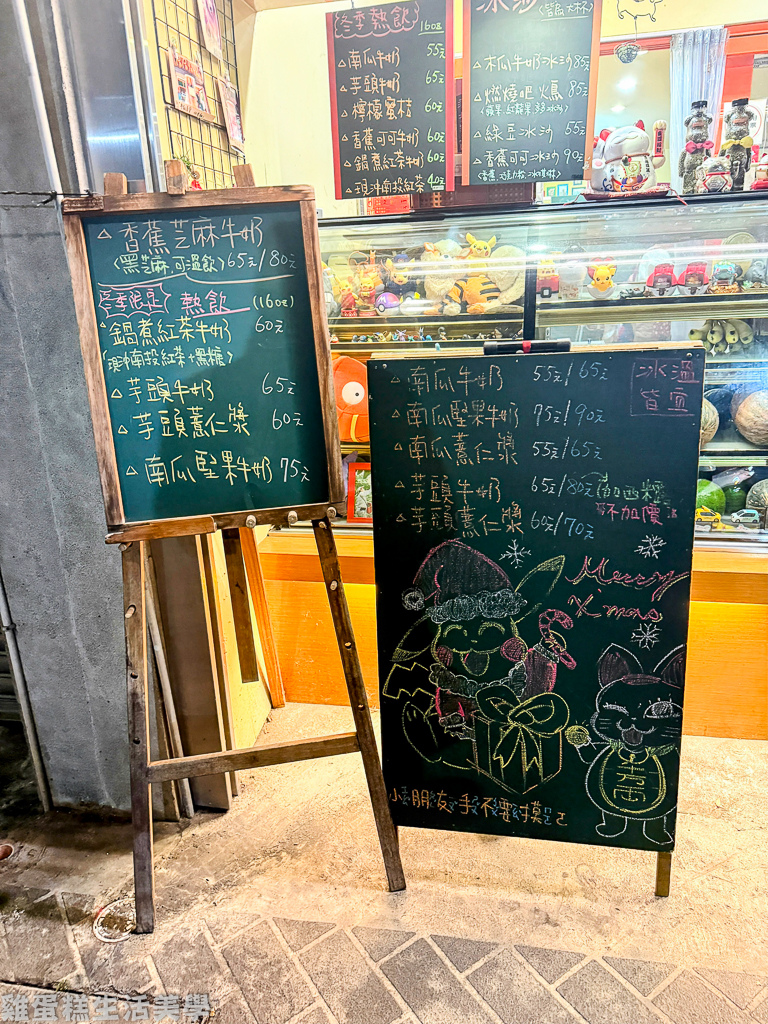 冬季熱飲 160元
△南瓜牛奶 55元
△芋頭牛奶 65元
△檸檬蜜桔 60元
△香蕉可可牛奶 60元
△鍋煮紅茶牛奶 60元
△現沖南投紅茶 40元
冰沙 (皆為大杯)
△木瓜牛奶冰沙 85元
△燃燒吧火鳥 85元
△綠豆冰沙 55元
△香蕉可可冰沙 90元
△香蕉芝麻牛奶
(黑芝麻.可溫飲) 65元/80元
冬季限定 熱飲 (16oz)
△鍋煮紅茶牛奶 60元
(現沖南投紅茶+黑糖)
△芋頭牛奶 65元
△芋頭薏仁漿 60元
△南瓜堅果牛奶 75元
△南瓜牛奶 55元/65元
冰溫皆宜
△南瓜堅果牛奶 75元/90元
△南瓜薏仁漿 55元/65元
△芋頭牛奶 65元/80元
△芋頭薏仁漿 60元/70元
Merry
X'mas
小朋友手不要摸
雞蛋糕生活美學